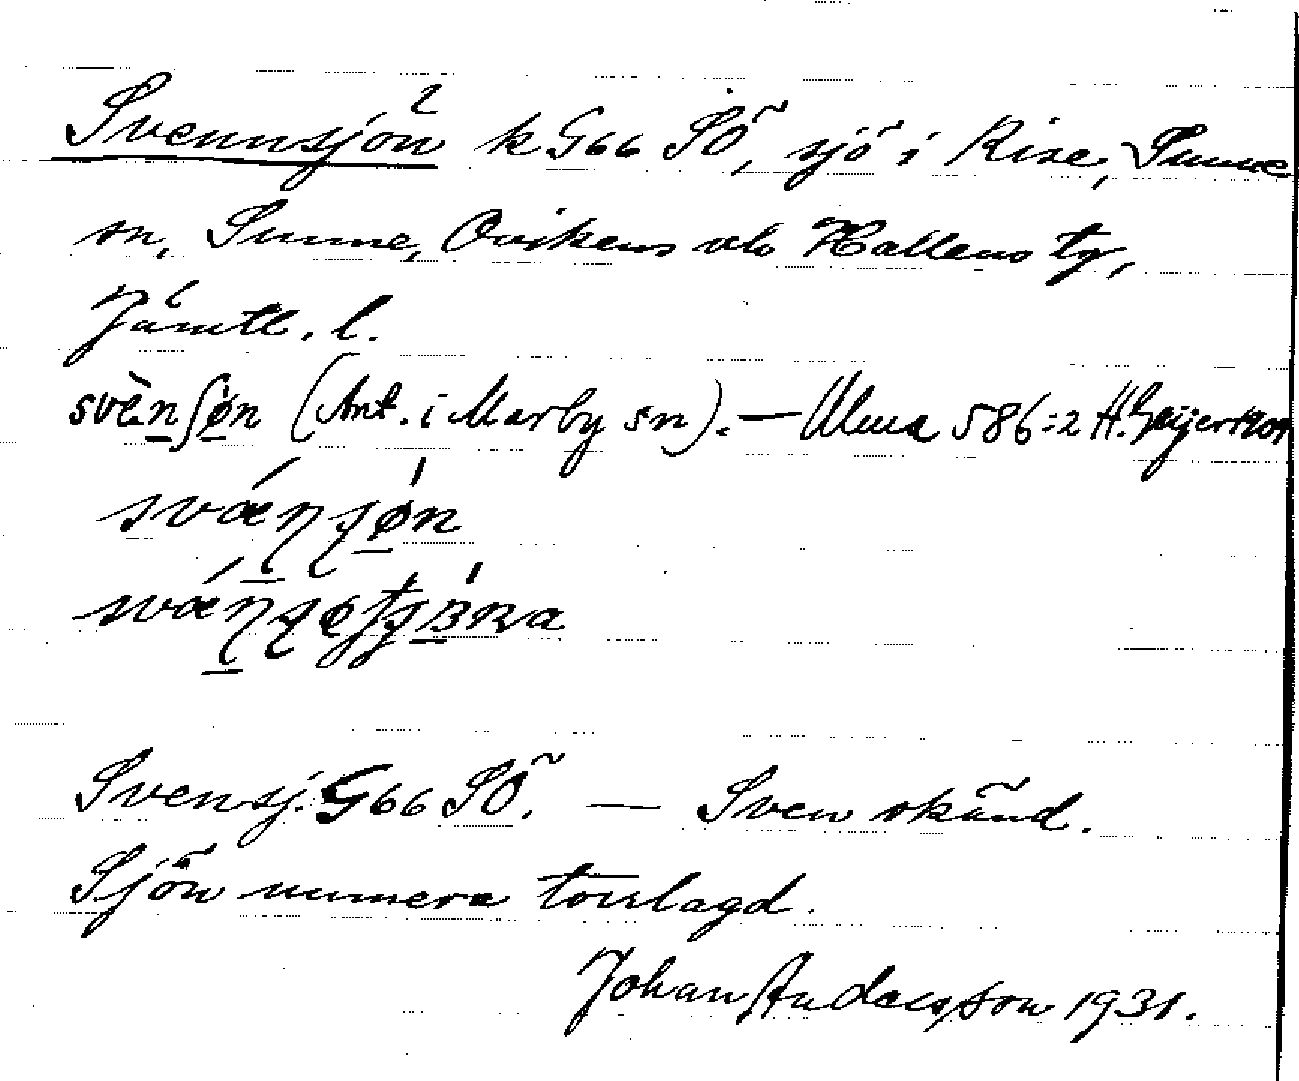 Svennsjön k G66 SÖ, sjö i Rise, Sunne
sn, Sunne, Ovikens och Hallens tg,
Jämtl. l.
svènʃøn (Ant. i Marby sn). — Ulma 586:2 H. Geijer 1909
sváensjøn
Svensj. G66 SÖ. — Sven okänd.
Sjön numera torrlagd.
Johan Andersson 1931.